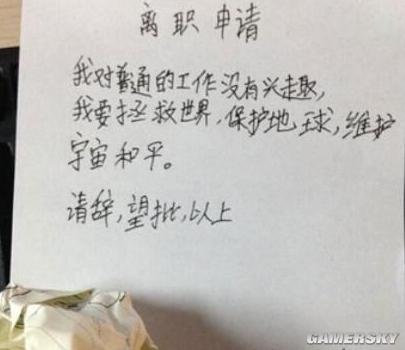 离职申请
我对普通的工作没有兴趣,
我要拯救世界,保护地球,维护
宇宙和平。
请辞,望批,以上
GAMERSKY